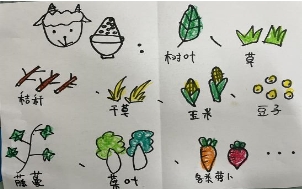 树叶 草
秸秆 干草 玉米 豆子
藤蔓 菜叶 各类萝卜 ...